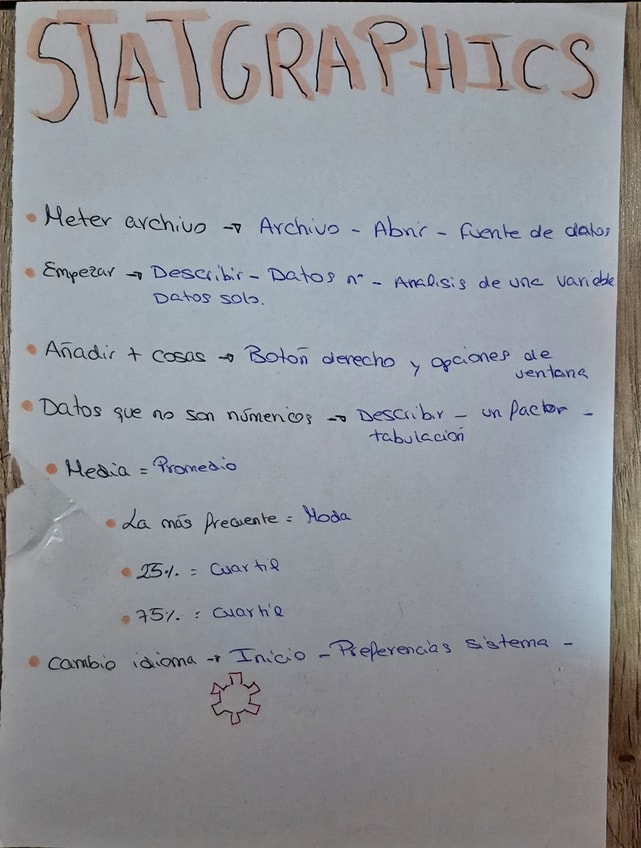 STATGRAPHICS
• Meter archivo → Archivo - Abrir - fuente de datos
• Empezar → Describir - Datos nº - Analisis de una variable
Datos solo.
• Añadir + cosas → Botoń derecho y opciones de
ventana
• Datos que no son númericos → Describir - un factor -
tabulación
• Media = Promedio
• La más frecuente = Moda
• 25% = Cuartil
• 75% = Cuartil
• Cambio idioma → Inicio - Preferencias sistema -